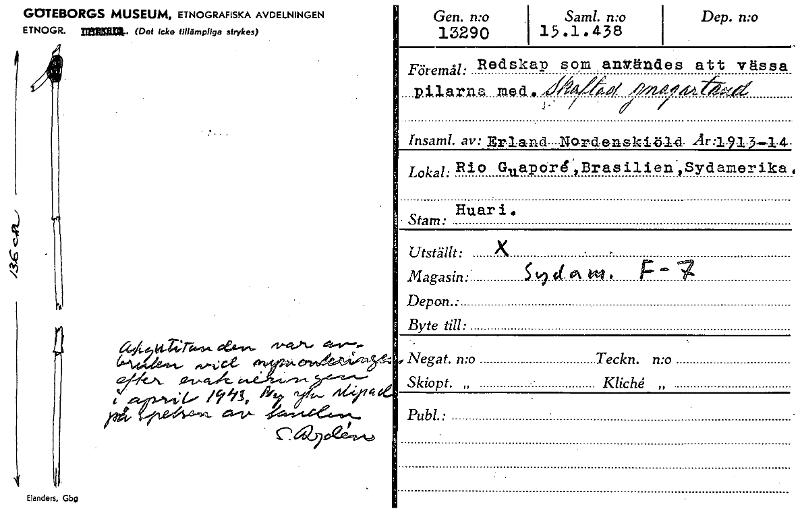 GÖTEBORGS MUSEUM, ETNOGRAFISKA AVDELNINGEN
ETNOGR. (Det icke tillämpliga strykes)
136 cm
Agutitanden var av-
bruten vid nymonteringen
efter evakueringen
i april 1943. Ny yta slipad
på spetsen av tanden
S. Rydén
Elanders, Gbg
Gen. n:o
13290
Saml. n:o
15.1.438
Dep. n:o
Föremål: Redskap som användes att vässa
pilarna med. Skaftad gnagartand
Insaml. av: Erland Nordenskiöld År:1913-14
Lokal: Rio Guaporé,Brasilien,Sydamerika.
Stam: Huari.
Utställt: X
Magasin: Sydam. F-7
Depon.:
Byte till:
Negat. n:o Teckn. n:o
Skiopt. „ Kliché „
Publ.: